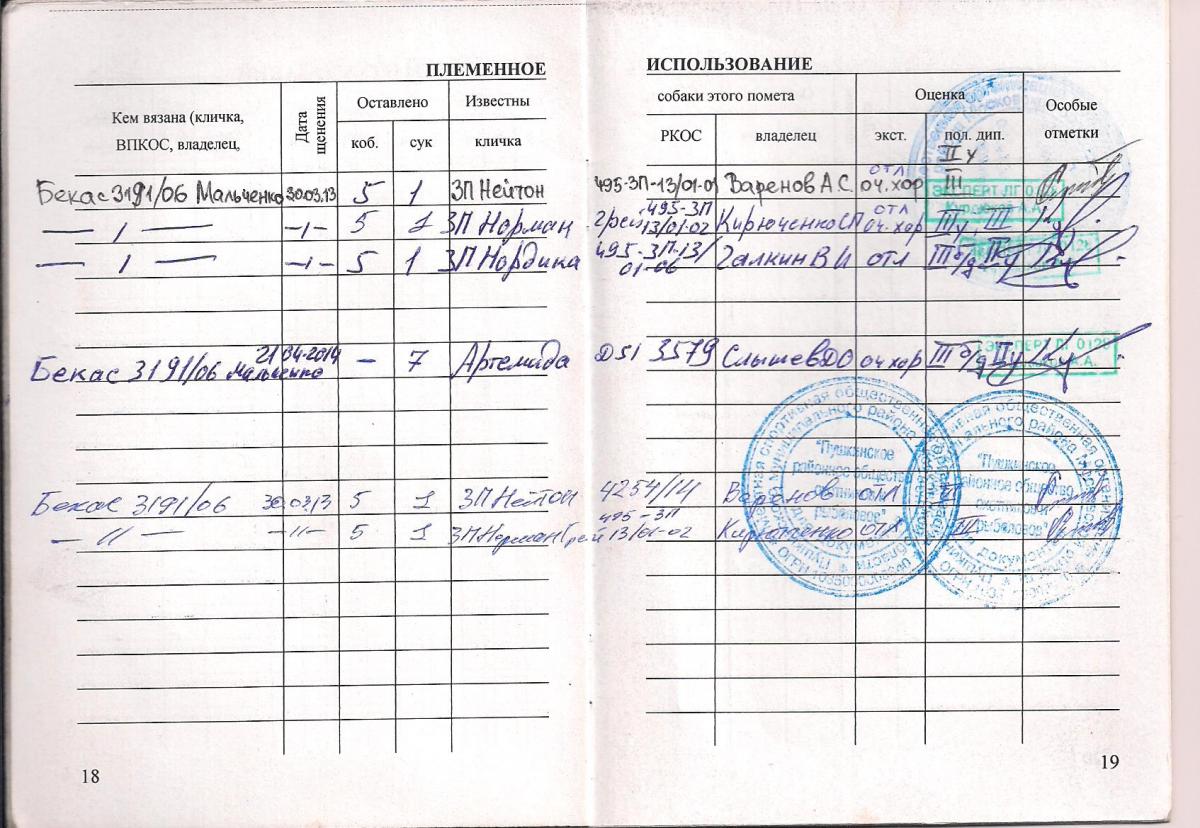 ПЛЕМЕННОЕ ИСПОЛЬЗОВАНИЕ
Кем вязана (кличка, ВПКОС, владелец,
Дата щенения
Оставлено
коб.
сук
Известны
кличка
собаки этого помета
РКОС
владелец
Оценка
экст.
пол. дип.
Особые отметки
IIу
отл
Бекас 3191/06 Мальченко 30.03.13 5 1 ЗП Нейтон 495-ЗП-13/01-01 Варенов А.С. оч.хор III
495-ЗП отл
— ı — -ı- 5 1 ЗП Норман Грей 13/01-02 Кирюченко СП оч.хор IIIу, III
495-ЗП-13/
— ı — -ı- 5 1 ЗП Нордика 01-06 Галкин В И отл III б/д
21 04-2014
Бекас 3191/06 Мальченко - 7 Артемида DSI 3579 Слышев ДО оч хор III б/д IIу
Бекас 3191/06 30.03.13 5 1 ЗП Нейтон 4254/14 Варенов отл
495-ЗП
— ıı — -ıı- 5 1 ЗП Норман Грей 13/01-02 Кирюченко отл III
ЭКСПЕРТ ЛГ 0
"Пушкинское
районное общество
охотников
рыболовов"
"Пушкинское
районное общество
охотников
рыболовов"
18
19